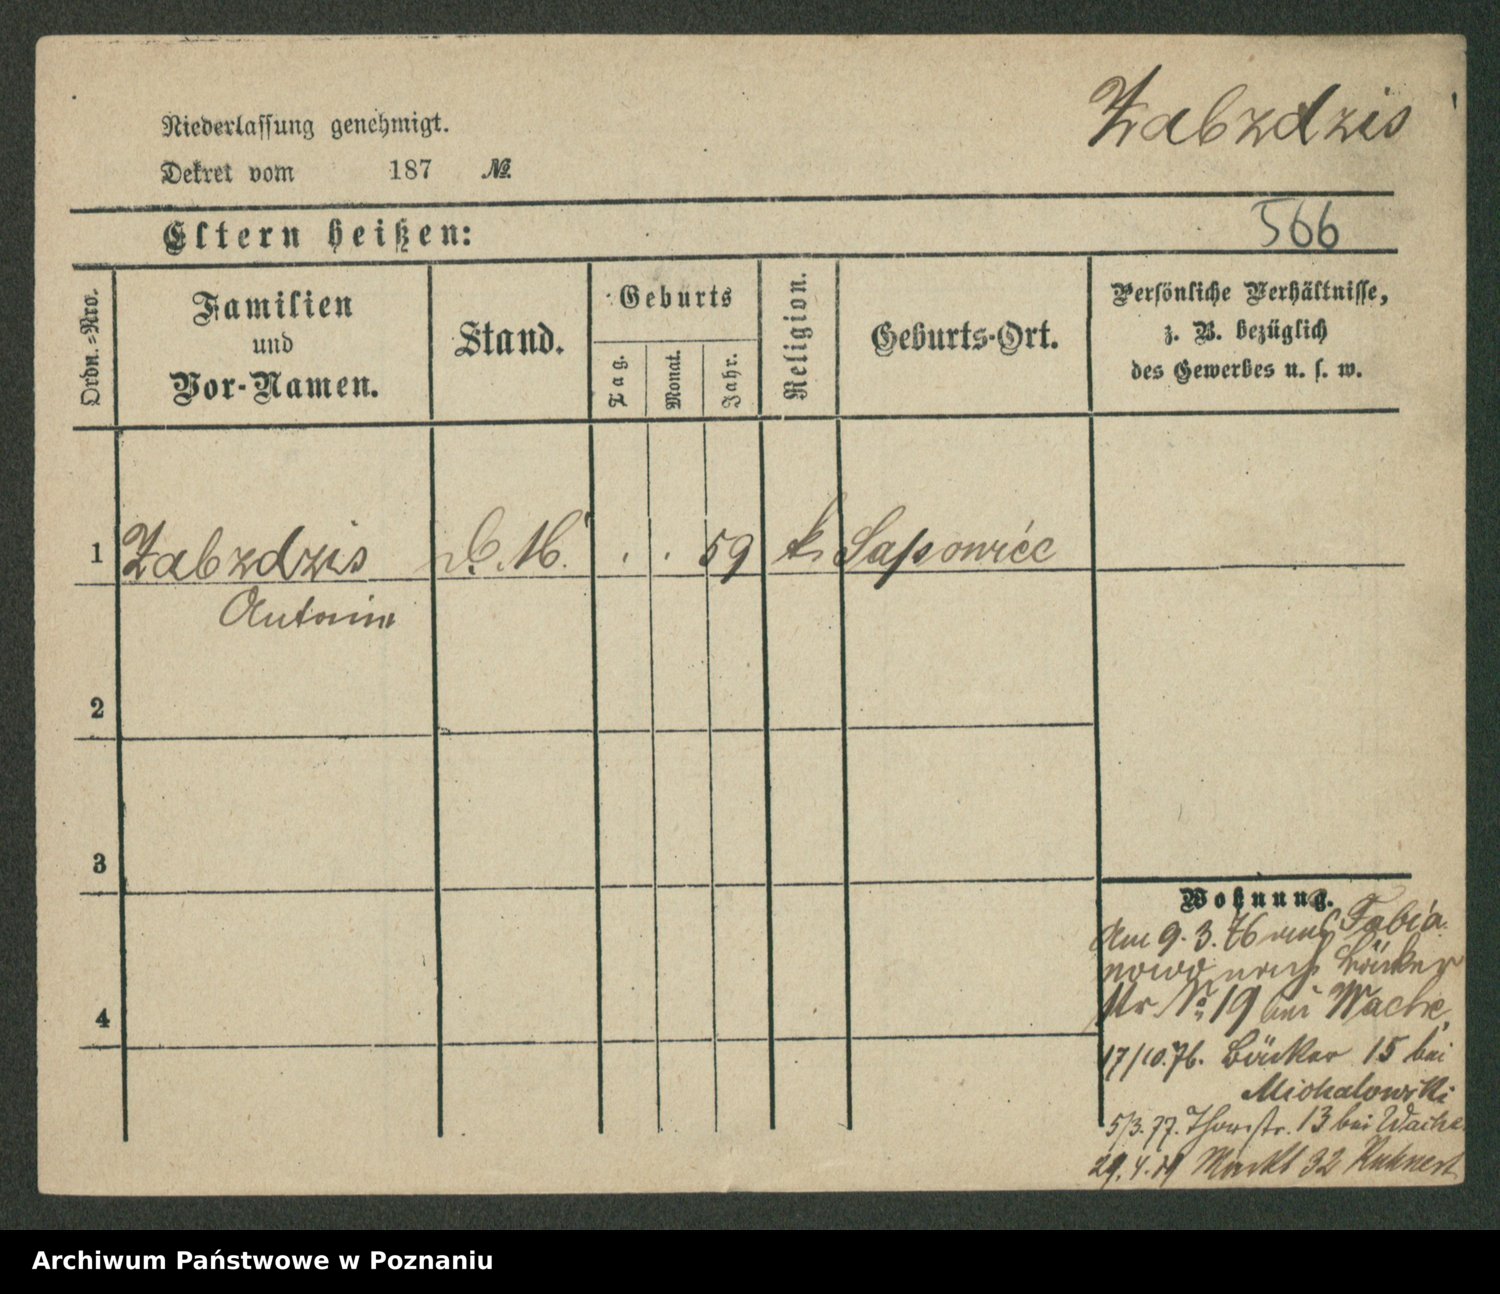 Zabzdzis
Niederlassung genehmigt.
Dekret vom 187 №.
Eltern heißen:
566
Ordn.-Nro.
Familien
und
Vor-Namen.
Stand.
Geburts
Tag.
Monat.
Jahr.
Religion.
Geburts-Ort.
Persönliche Verhältnisse,
z. B. bezüglich
des Gewerbes u. s. w.
1 Zabzdzis D. M. . . 59 k. Sapowice
Antonin
2
3
4
Wohnung.
Am 9.3.76 aus Fabia
nowo nach Bäcker
Str. No 19 bei Wache
17/10.76. Bäcker 15 bei
Michalowski
5/3.77. Thorstr. 13 bei Wache
29.4. Markt 32 Kuhnert
Archiwum Państwowe w Poznaniu